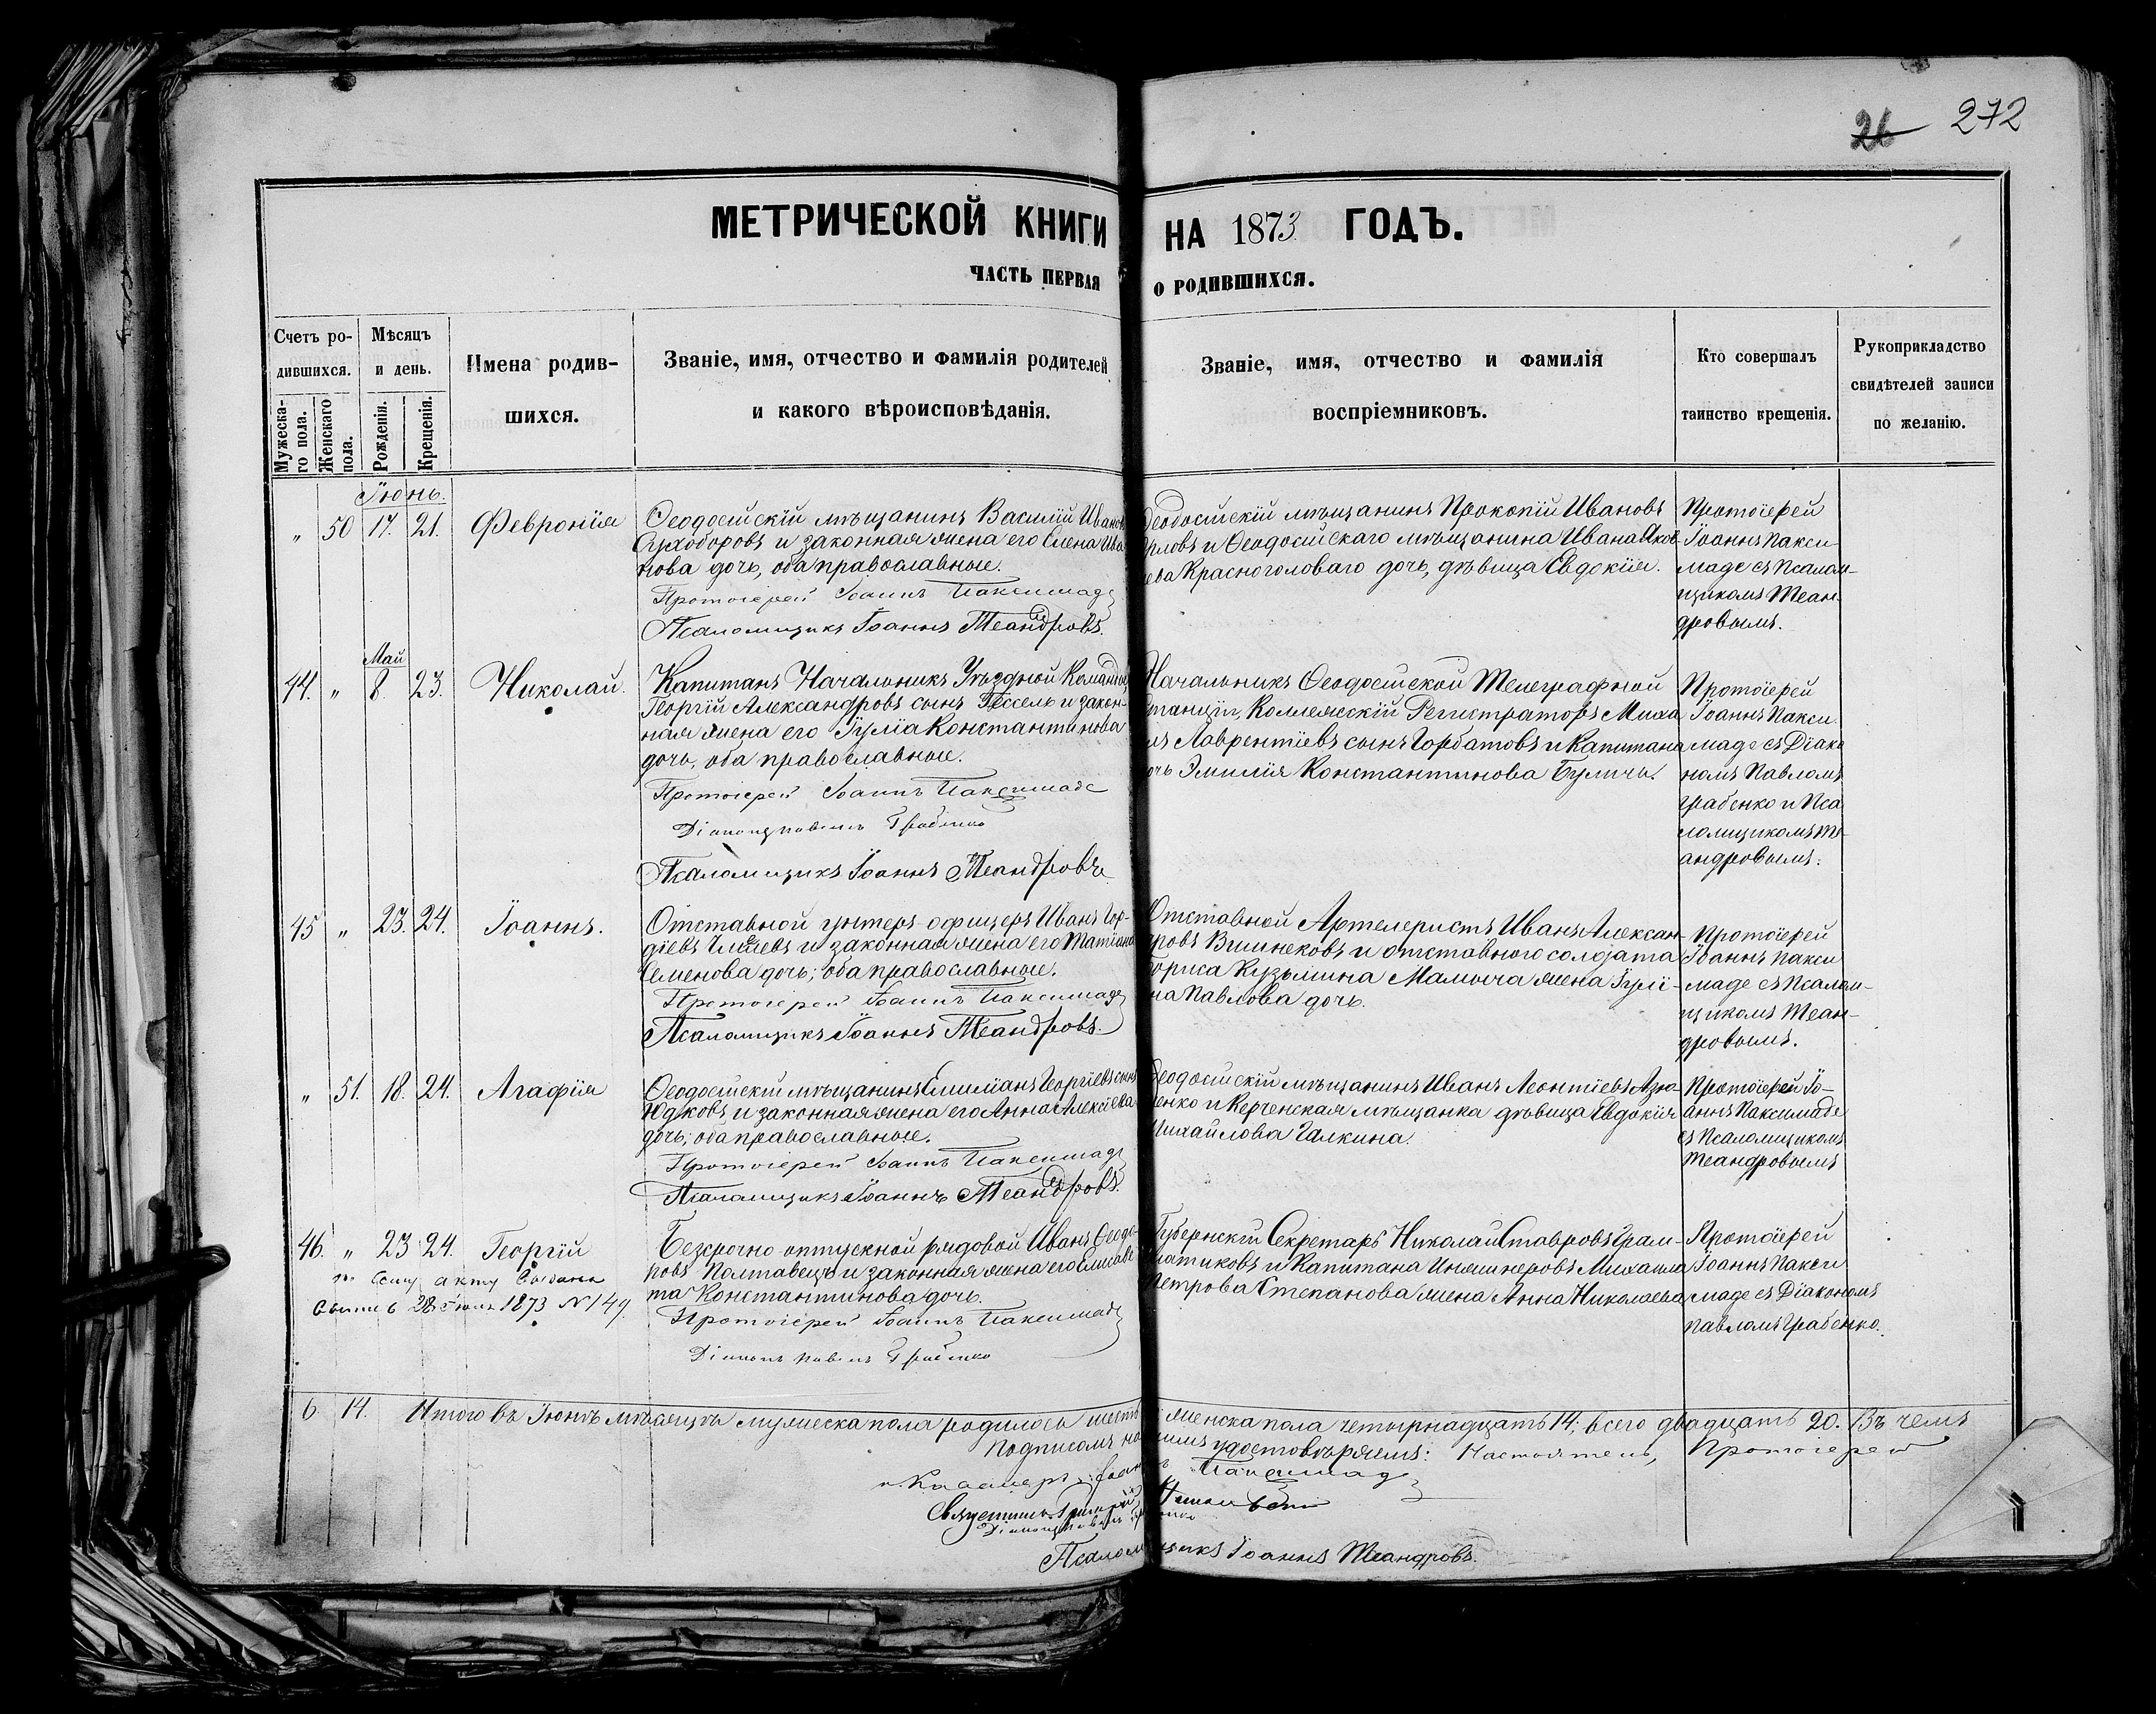 26 272
МЕТРИЧЕСКОЙ КНИГИ НА 1873 ГОДЪ.
ЧАСТЬ ПЕРВАЯ О РОДИВШИХСЯ.
Счетъ ро-
дившихся.
Мужеска-
го пола.
Женскаго
пола.
Мѣсяцъ
и день.
Рожденія.
Крещенія.
Имена родив-
шихся.
Званіе, имя, отчество и фамилія родителей
и какого вѣроисповѣданія.
Званіе, имя, отчество и фамилія
воспріемниковъ.
Кто совершалъ
таинство крещенія.
Рукоприкладство
свидѣтелей записи
по желанію.
Іюнь.
„ 50 17. 21. Февронія
Ѳеодосійскій мѣщанинъ Василій Иванов
Сухоборовъ и законная жена его Елена Ива
нова дочь, оба православные.
Протоіерей Іоаннъ Паксимаде
Псаломщикъ Іоаннъ Теандровъ.
Ѳеодосійскій мѣщанинъ Прокопій Ивановъ
Орловъ и Ѳеодосійскаго мѣщанина Ивана Яков-
лева Красноголоваго дочь, дѣвица Евдокія.
Протоіерей
Іоаннъ Пакси-
маде съ Псалом-
щикомъ Теан-
дровымъ.
Май
44. „ 8. 23. Николай.
Капитанъ Начальникъ Уѣздной Команды,
Георгій Александровъ сынъ Гессель и закон-
ная жена его Іулія Константинова
дочь, оба православные.
Протоіерей Іоаннъ Паксимаде
Діаконъ Павелъ Грабенко
Псаломщикъ Іоаннъ Теандровъ
Начальникъ Ѳеодосійской Телеграфной
Станціи, Коллежскій Регистраторъ Миха
илъ Лаврентіевъ сынъ Горбатовъ и Капитана
дочь Эмилія Константинова Буличъ.
Протоіерей
Іоаннъ Пакси.
маде съ Діако
номъ Павломъ
Грабенко и Пса
ломщикомъ Те-
андровымъ.
45 „ 23. 24. Іоаннъ.
Отставной унтеръ-офицеръ Иванъ Гор-
діевъ и законная жена его Татіана
Семенова дочь; оба православные.
Протоіерей Іоаннъ Паксимаде
Псаломщикъ Іоаннъ Теандровъ.
Отставной Артелеристъ Иванъ Алексан-
дровъ и отставного солдата
Бориса Кузьмина Мамыча жена Іулі-
на Павлова дочь.
Протоіерей
Іоаннъ Пакси
маде съ Псалом-
щикомъ Теан-
дровымъ.
„ 51. 18. 24. Агафія
Ѳеодосійскій мѣщанинъ Емиліанъ Георгіевъ сынъ
Юдковъ и законная жена его Анна Алексіева
дочь; оба православные.
Протоіерей Іоаннъ Паксимаде
Псаломщикъ Іоаннъ Теандровъ.
Ѳеодосійскій мѣщанинъ Иванъ Леонтіевъ
и Керченская мѣщанка дѣвица Евдокія
Михайлова Галкина.
Протоіерей Іо-
аннъ Паксимаде
съ Псаломщикомъ
Теандровымъ
46. „ 23 24. Георгій
по сему акту выдано
28 Іюля 1873 N 149.
Безсрочно отпускной рядовой Иванъ Ѳеодо-
ровъ Полтавецъ и законная жена его Елисаве
та Константинова дочь.
Протоіерей Іоаннъ Паксимаде
Діаконъ Павелъ Грабенко
Губернскій Секретарь Николай Ставровъ Грам-
матиковъ и Капитана Инженеровъ Михаила
Петрова Степанова жена Анна Николаева
Протоіерей
Іоаннъ Пакси
маде съ Діакономъ
Павломъ Грабенко.
6. 14. Итого въ Іюнѣ мѣсяцѣ мужеска пола родилось шесть женска пола четырнадцать 14; всего двадцать 20. Въ чемъ
подписомъ нашимъ удостовѣряемъ: Настоятель, Протоіерей
и Кавалеръ Іоаннъ Паксимаде
Священникъ
Діаконъ Павелъ Грабенко
Псаломщикъ Іоаннъ Теандровъ.